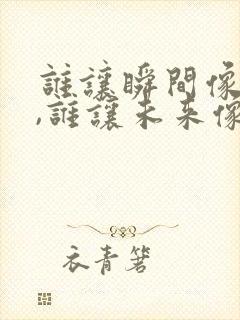 誰讓瞬間像
,誰讓未来像
衣青箬